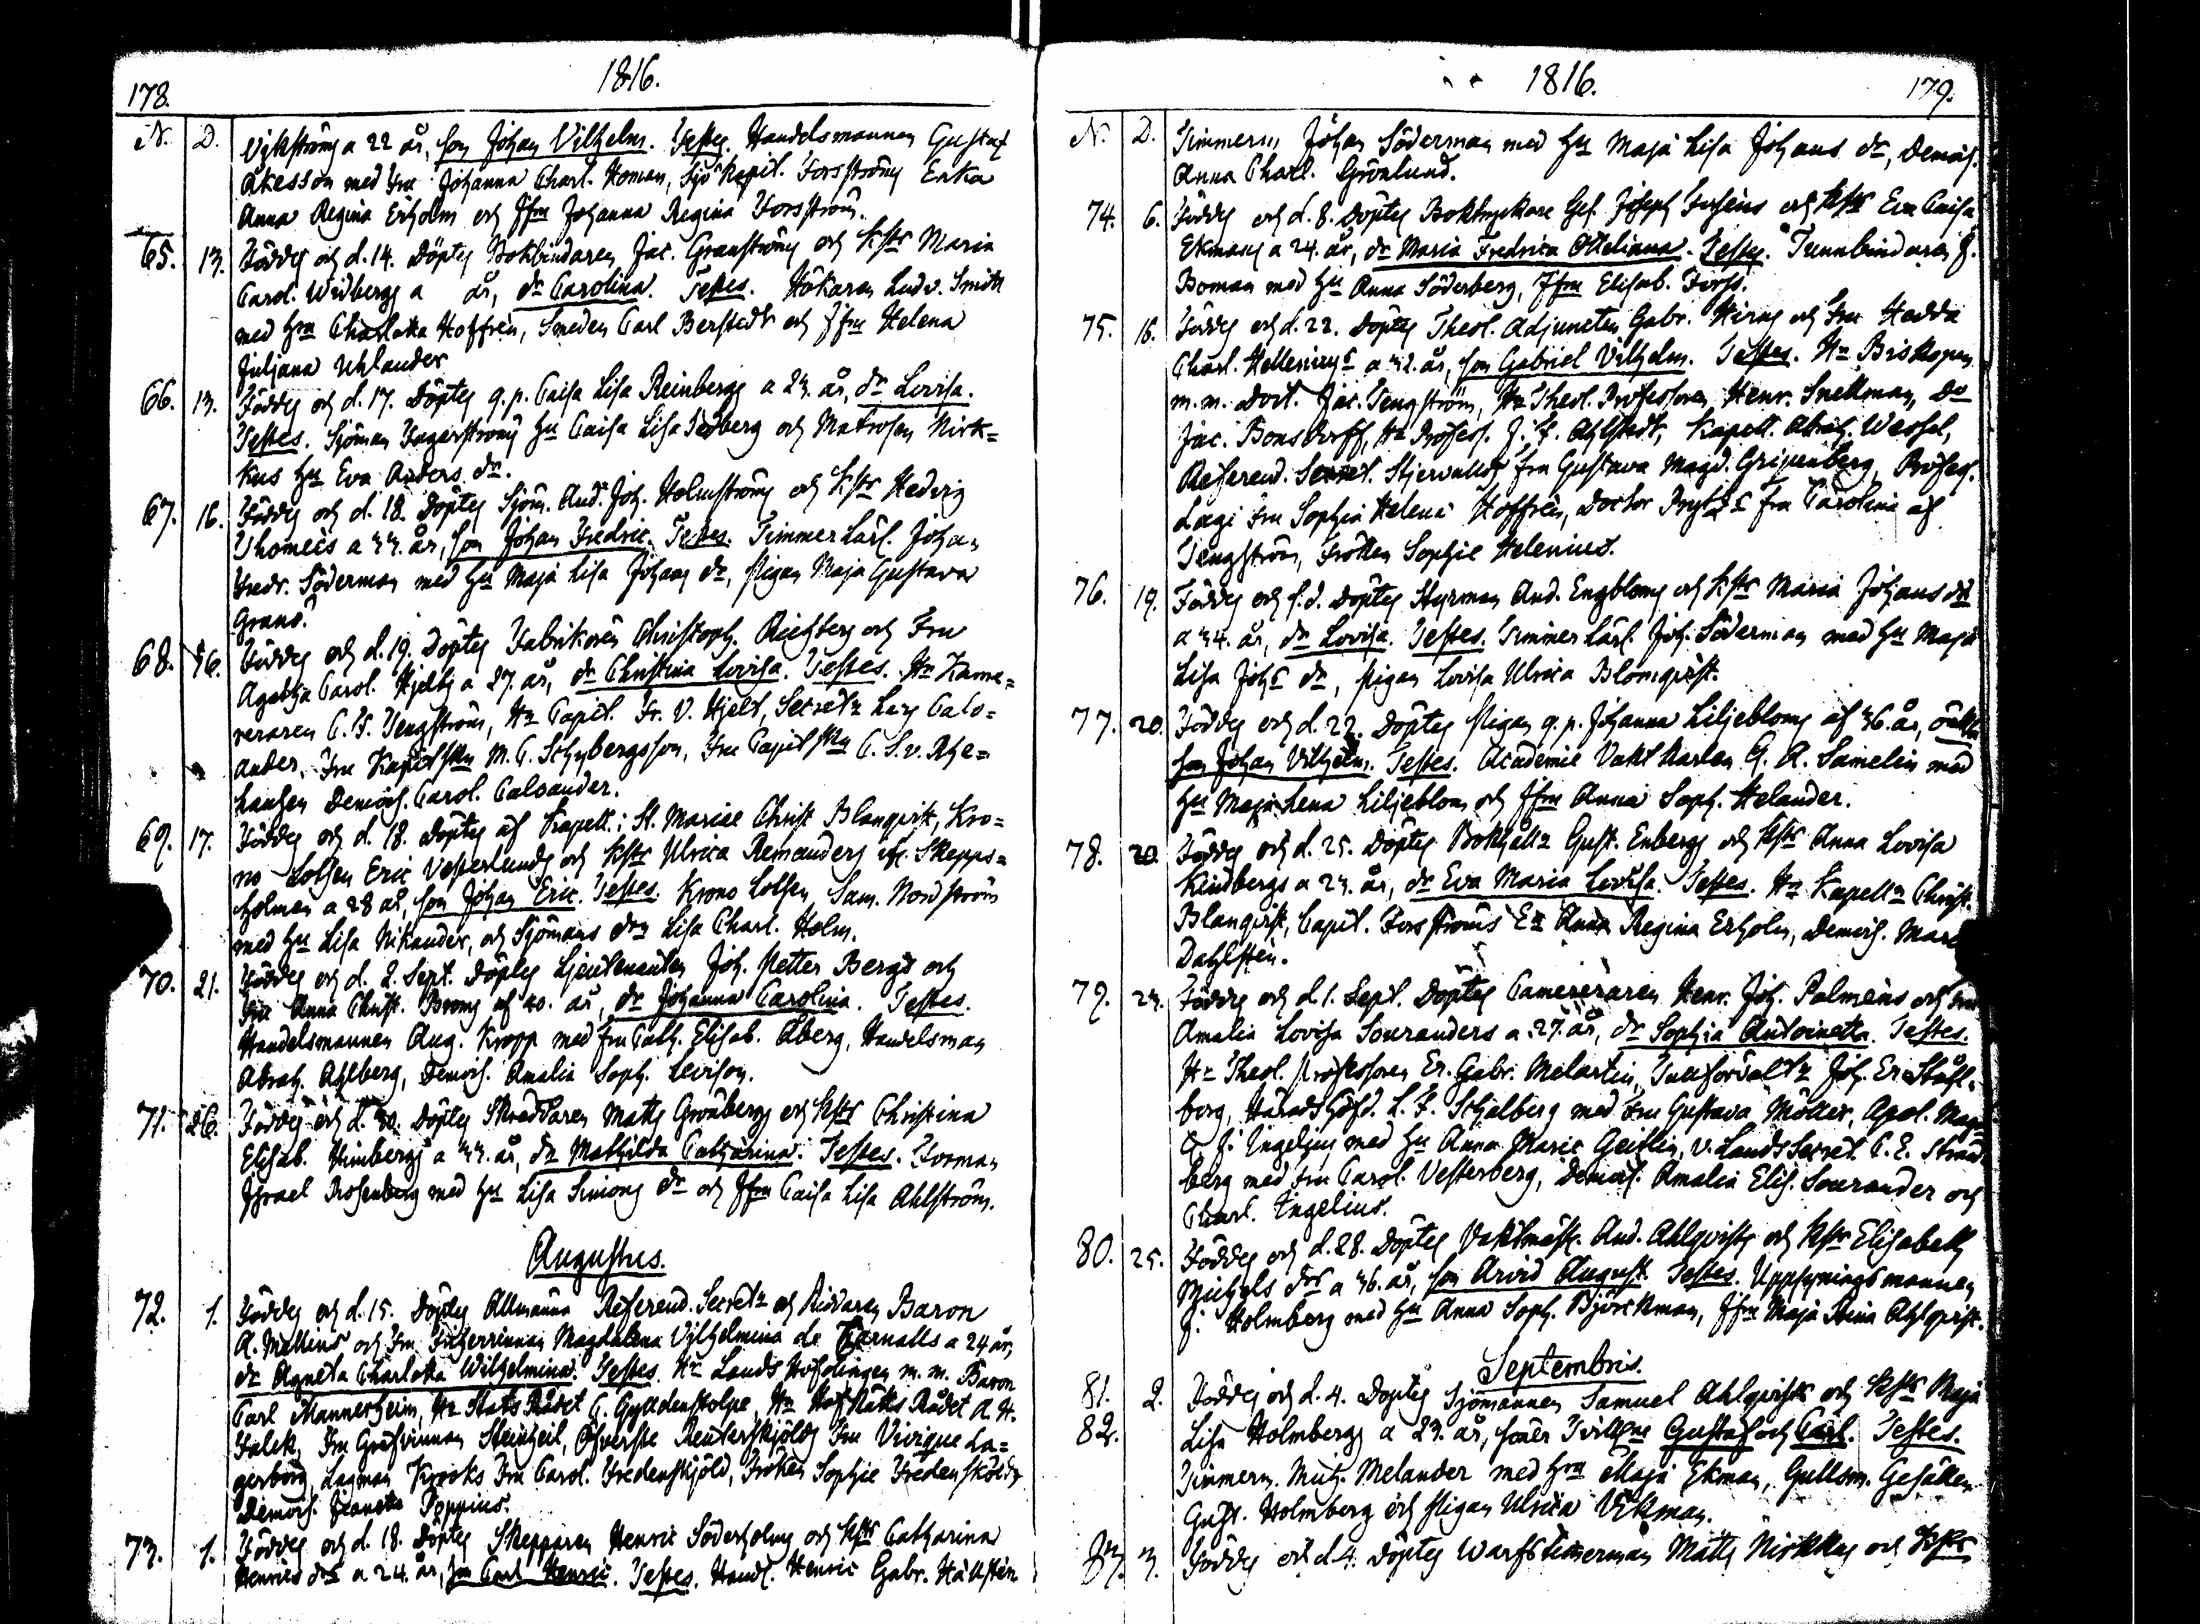 178.
1816.
N. D.
Vikström a 22 år, son Johan Vilhelm. Testes. Handelsmannen Gustaf
Åkesson med Fru Johanna Charl. Homan, Sjö Kapit. Forsström Enka
Anna Regina Erholm och Jfru Johanna Regina Forsström.
65. 13. Föddes och d. 14. Döptes Bokbindaren Jac. Granströms och hstr Maria
Carol. Widbergs a år, dr Carolina. Testes. Hökaren Ludv. Smitt
med hru Charlotta Hoffrén, Smeden Carl Berstedt och Jfru Helena
Juliana Uhlander
66. 13. Föddes och d. 17. Döptes q. p. Caisa Lisa Reinbergs a 23 år, dr Lovisa.
Testes. Sjöman Fagerström hu Caisa Lisa Tedberg och Matrosen Nirk=
kus hu Eva Anders dr.
67. 16. Föddes och d. 18. Döptes Sjöm. And. Joh. Holmströms och hstr Hedvig
Thomeés a 33. år, son Johan Fredric. Testes. Timmerkarl. Johan
Fredr. Söderman med hu Maja Lisa Johans dr, Pigan Maja Gustava
Grans.
68. 16. Föddes och d. 19. Döptes Fabrikoren Christoph. Richters och Fru
Agatha Carol. Hjelts a 27. år, dr Christina Lovisa. Testes. Hr Kame=
reraren C. F. Tengström, Hr Capit. Fr. V. Hjelt, Secretr Lars Calo=
ander, Fru M. C. Schybergsson, Fru C. S. v. Rhe=
hausen Demois. Carol. Caloander.
69. 17. Föddes och d. 18. Döptes af Kapell. i St. Mariae Christ Blanqvist, Kro=
no Lotsen Eric Vesterlunds och hstr Ulrica Remanders ifr. Skepps=
holmen a 28 år, son Johan Eric. Testes. Krono Lotsen Sam. Nordström
med hu Lisa Nikander, och Sjömans drn Lisa Charl. Holm.
70. 21. Föddes och d. 2. Sept. Döptes Lieutenanten Joh. Petter Bergs och
Fru Anna Christ. Broms af 40. år, dr Johanna Carolina. Testes.
Handelsmannen Aug. Kropp med fru Cath. Elisab. Åberg, Handelsman
Abrah. Ahlberg, Demois. Amalia Soph. Levison.
71. 26. Föddes och d. 30. Döptes Skräddaren Matts Grönbergs och hstr Christina
Elisab. Himbergs a 33. år, dr Mathilda Catharina. Testes. Forman
Israel Rosenberg med hu Lisa Simons dr och Jfru Caisa Lisa Ahlström.
Augustus.
72. 1. Föddes och d. 15. Döptes Allmänna Referend. Secretr och Riddaren Baron
A. Mellins och Fru Friherrinnan Magdalena Vilhelmina de Carnalls a 24 år,
dr Agneta Charlotta Wilhelmina. Testes. Hr Landshöfdingen m. m. Baron
Carl Mannerheim, Hr Stats Rådet C. Gyldenstolpe, Hr Hof Rätts Rådet A. H.
Falck, Fru Grefvinnan Steinheil, Öfverste Reuterskjölds Fru Vivique La=
gerborg, Lagman Krooks Fru Carol. Fredenskjöld, Fröken Sophie Fredensköld
Demois. Jeanette Poppius.
73. 1. Föddes och d. 18. Döptes Skepparen Henric Söderholms och hstr Catharina
Henrics drs a 24. år, son Carl Henric. Testes. Handl. Henric Gabr. Hällstén
1816.
179.
N. D.
Timmerm Johan Söderman med hu Maja Lisa Johans dr, Demois.
Anna Charl. Grönlund.
74. 6. Föddes och d. 8. Döptes Boktryckare Ges. Joseph och hstr Eva Caisa
Ekmans a 24. år, dr Maria Fredrica Otteliana. Testes. Tunnbindaren J.
Boman med hu Anna Söderberg, Jfru Elisab. Forss.
75. 16. Föddes och d. 22. Döptes Theol. Adjuncten Gabr. Hirns och Fru Hedda
Charl. Hellenii a 32. år, son Gabriel Vilhelm. Testes. Hr Biskopen
m. m. Doct. Jac. Tengström, Hr Theol. Professoren Henr. Snellman, Dr
Jac. Bonsdorff, Hr Profess. J. F. Ahlstedt, Kapell. Abrah. Wessel,
Referend. Secret. fru Gustava Magd. Gripenberg, Profess.
Lagi Fru Sophia Helena Hoffrén, Doctor Prytz fru Carolina af
Tengström, Fröken Sophie Helenius.
76. 19. Föddes och s. d. Döptes Styrman And. Engbloms och hstr Maria Johans dr
a 34. år, dr Lovisa. Testes. Timmerkarl. Joh. Söderman med hu Maja
Lisa Johs dr, Pigan Lovisa Ulrica Blomqvist.
77. 20. Föddes och d. 22. Döptes Pigan q. p. Johanna Liljebloms af 36. år, oäkta
son Johan Vilhelm. Testes. Academie Vaktkarlen G. R. Samelin med
hu Maja Lena Liljeblom och Jfru Anna Soph. Helander.
78. 20. Föddes och d. 25. Döptes Bokhållr Gust. Enbergs och hstr Anna Lovisa
Kindbergs a 23. år, dr Eva Maria Lovisa. Testes. Hr Kapelln Christ.
Blanqvist, Capit. Forsströms En Anna Regina Erholm, Demois. Maria
Dahlstén.
79. 23. Föddes och d. 1. Sept. Döptes Camereraren Henr. Joh. Palmens och fru
Amalia Lovisa Souranders a 27. år, dr Sophia Antoinetta. Testes.
Hr Theol. Professoren Er. Gabr. Melartin, Tullförvaltr Joh. Er. Ståhl=
berg, Häradshöfd. L. F. Schalberg med Fru Gustava Möller, Apol. Mag.
G. J. Ingelius med hu Anna Marie Geitlin, V. Lands Secret. C. E. Strand
berg med Fru Carol. Vesterberg, Demois. Amalia Elis. Sourander och
Charl. Ingelius.
80. 25. Föddes och d. 28. Döptes Vaktmäst. And. Ahlqvists och hstr Elisabeth
Michels drs a 36. år, son Arvid August. Testes. Uppsyningsmannen
J. Holmberg med hu Anna Soph. Björckman, Jfru Maja Stina Ahlqvist.
Septembris.
81. 2. Föddes och d. 4. Döptes Sjömannen Samuel Ahlqvists och hstr Maja
82. Lisa Holmbergs a 23. år, söner Gustaf och Carl. Testes.
Timmerm. Mich. Melander med hru Maja Ekman, Gullsm. Gesällen
Gust. Holmberg och Pigan Ulrica Vekman.
83. 3. Föddes och d. 4. Döptes Warfs Timerman Matts Nirkkus och hstr